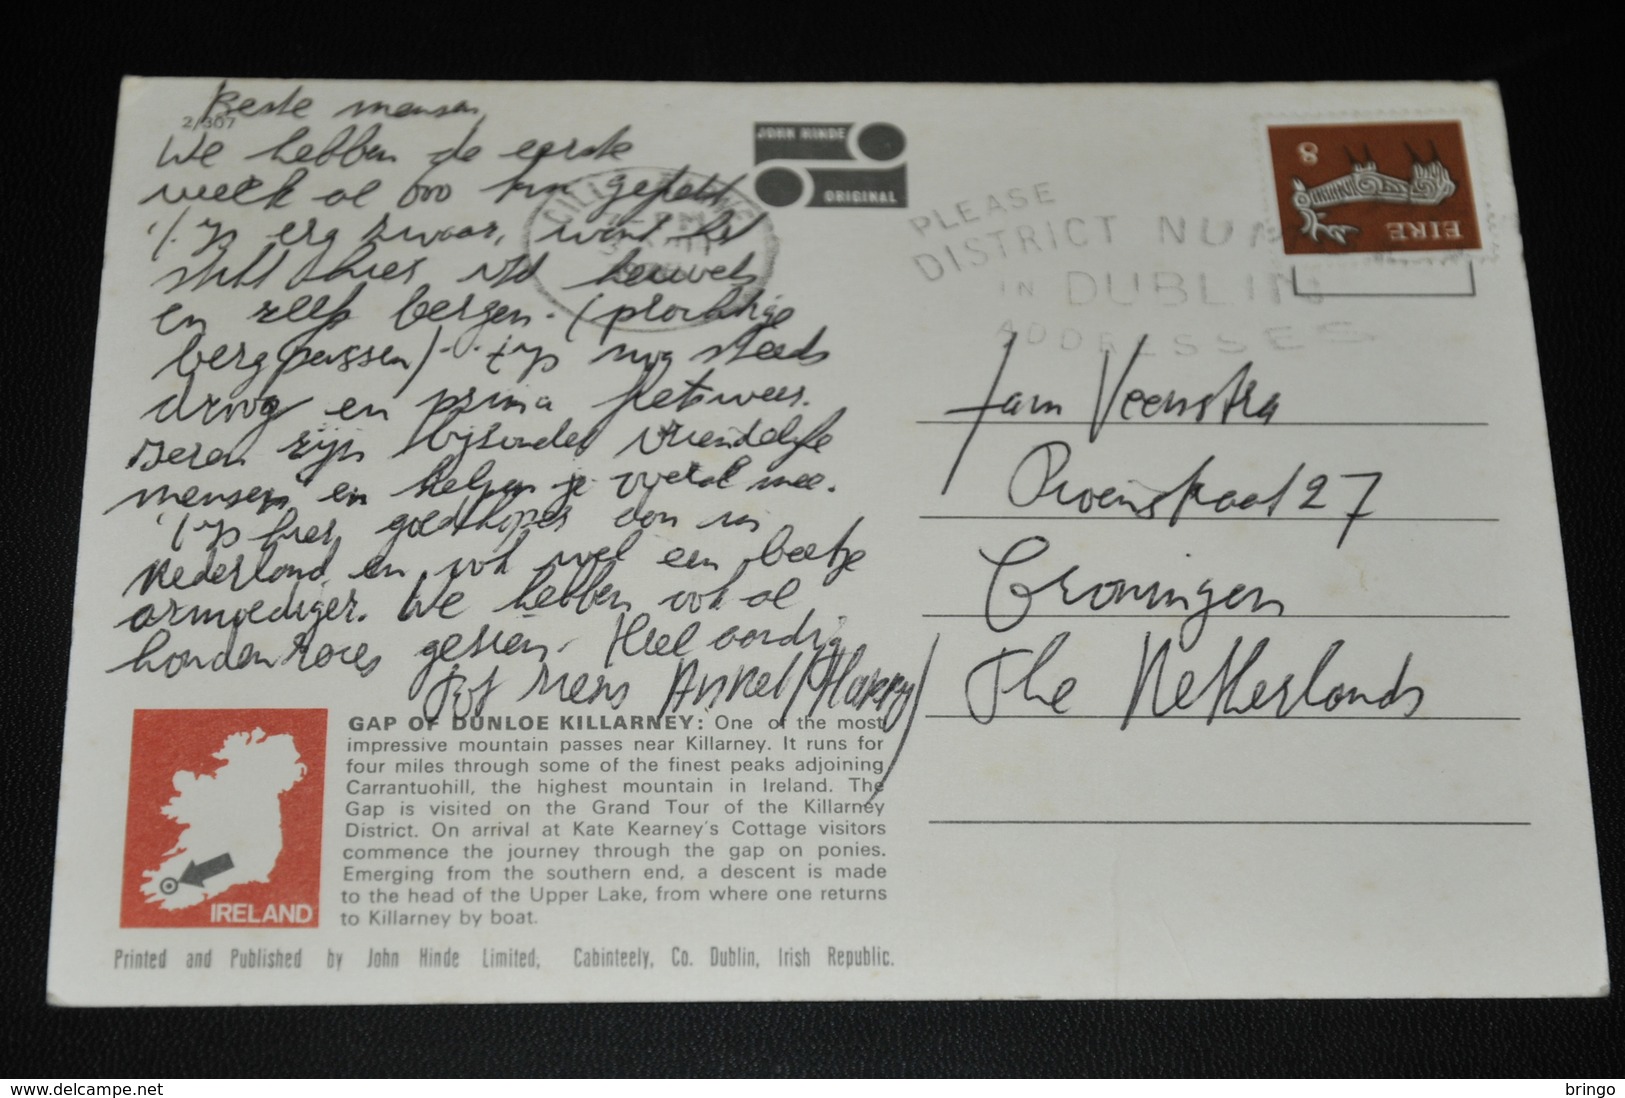 Beste mensen,
2/307
We hebben de eerste
week al 600 km gefietst
't is erg zwaar, want het
stikt hier v/d heuvels
en zelfs bergen. (prachtige
bergpassen)... 't is nog steeds
droog en prima fietsweer.
Ieren zijn bijzonder vriendelijke
mensen en helpen je overal mee.
't is hier goedkoper dan in
Nederland en ook wel een beetje
armoediger. We hebben ook al
hondenraces gezien. Heel aardig
Tot ziens (Harry)
JOHN HINDE
ORIGINAL
PLEASE
DISTRICT NUM
IN DUBLIN
ADDRESSES
8
EIRE
Jan Veenstra
27
Groningen
The Netherlands
GAP OF DUNLOE KILLARNEY: One of the most
impressive mountain passes near Killarney. It runs for
four miles through some of the finest peaks adjoining
Carrantuohill, the highest mountain in Ireland. The
Gap is visited on the Grand Tour of the Killarney
District. On arrival at Kate Kearney's Cottage visitors
commence the journey through the gap on ponies.
Emerging from the southern end, a descent is made
to the head of the Upper Lake, from where one returns
to Killarney by boat.
IRELAND
Printed and Published by John Hinde Limited, Cabinteely, Co. Dublin, Irish Republic.
www.delcampe.net
bringo